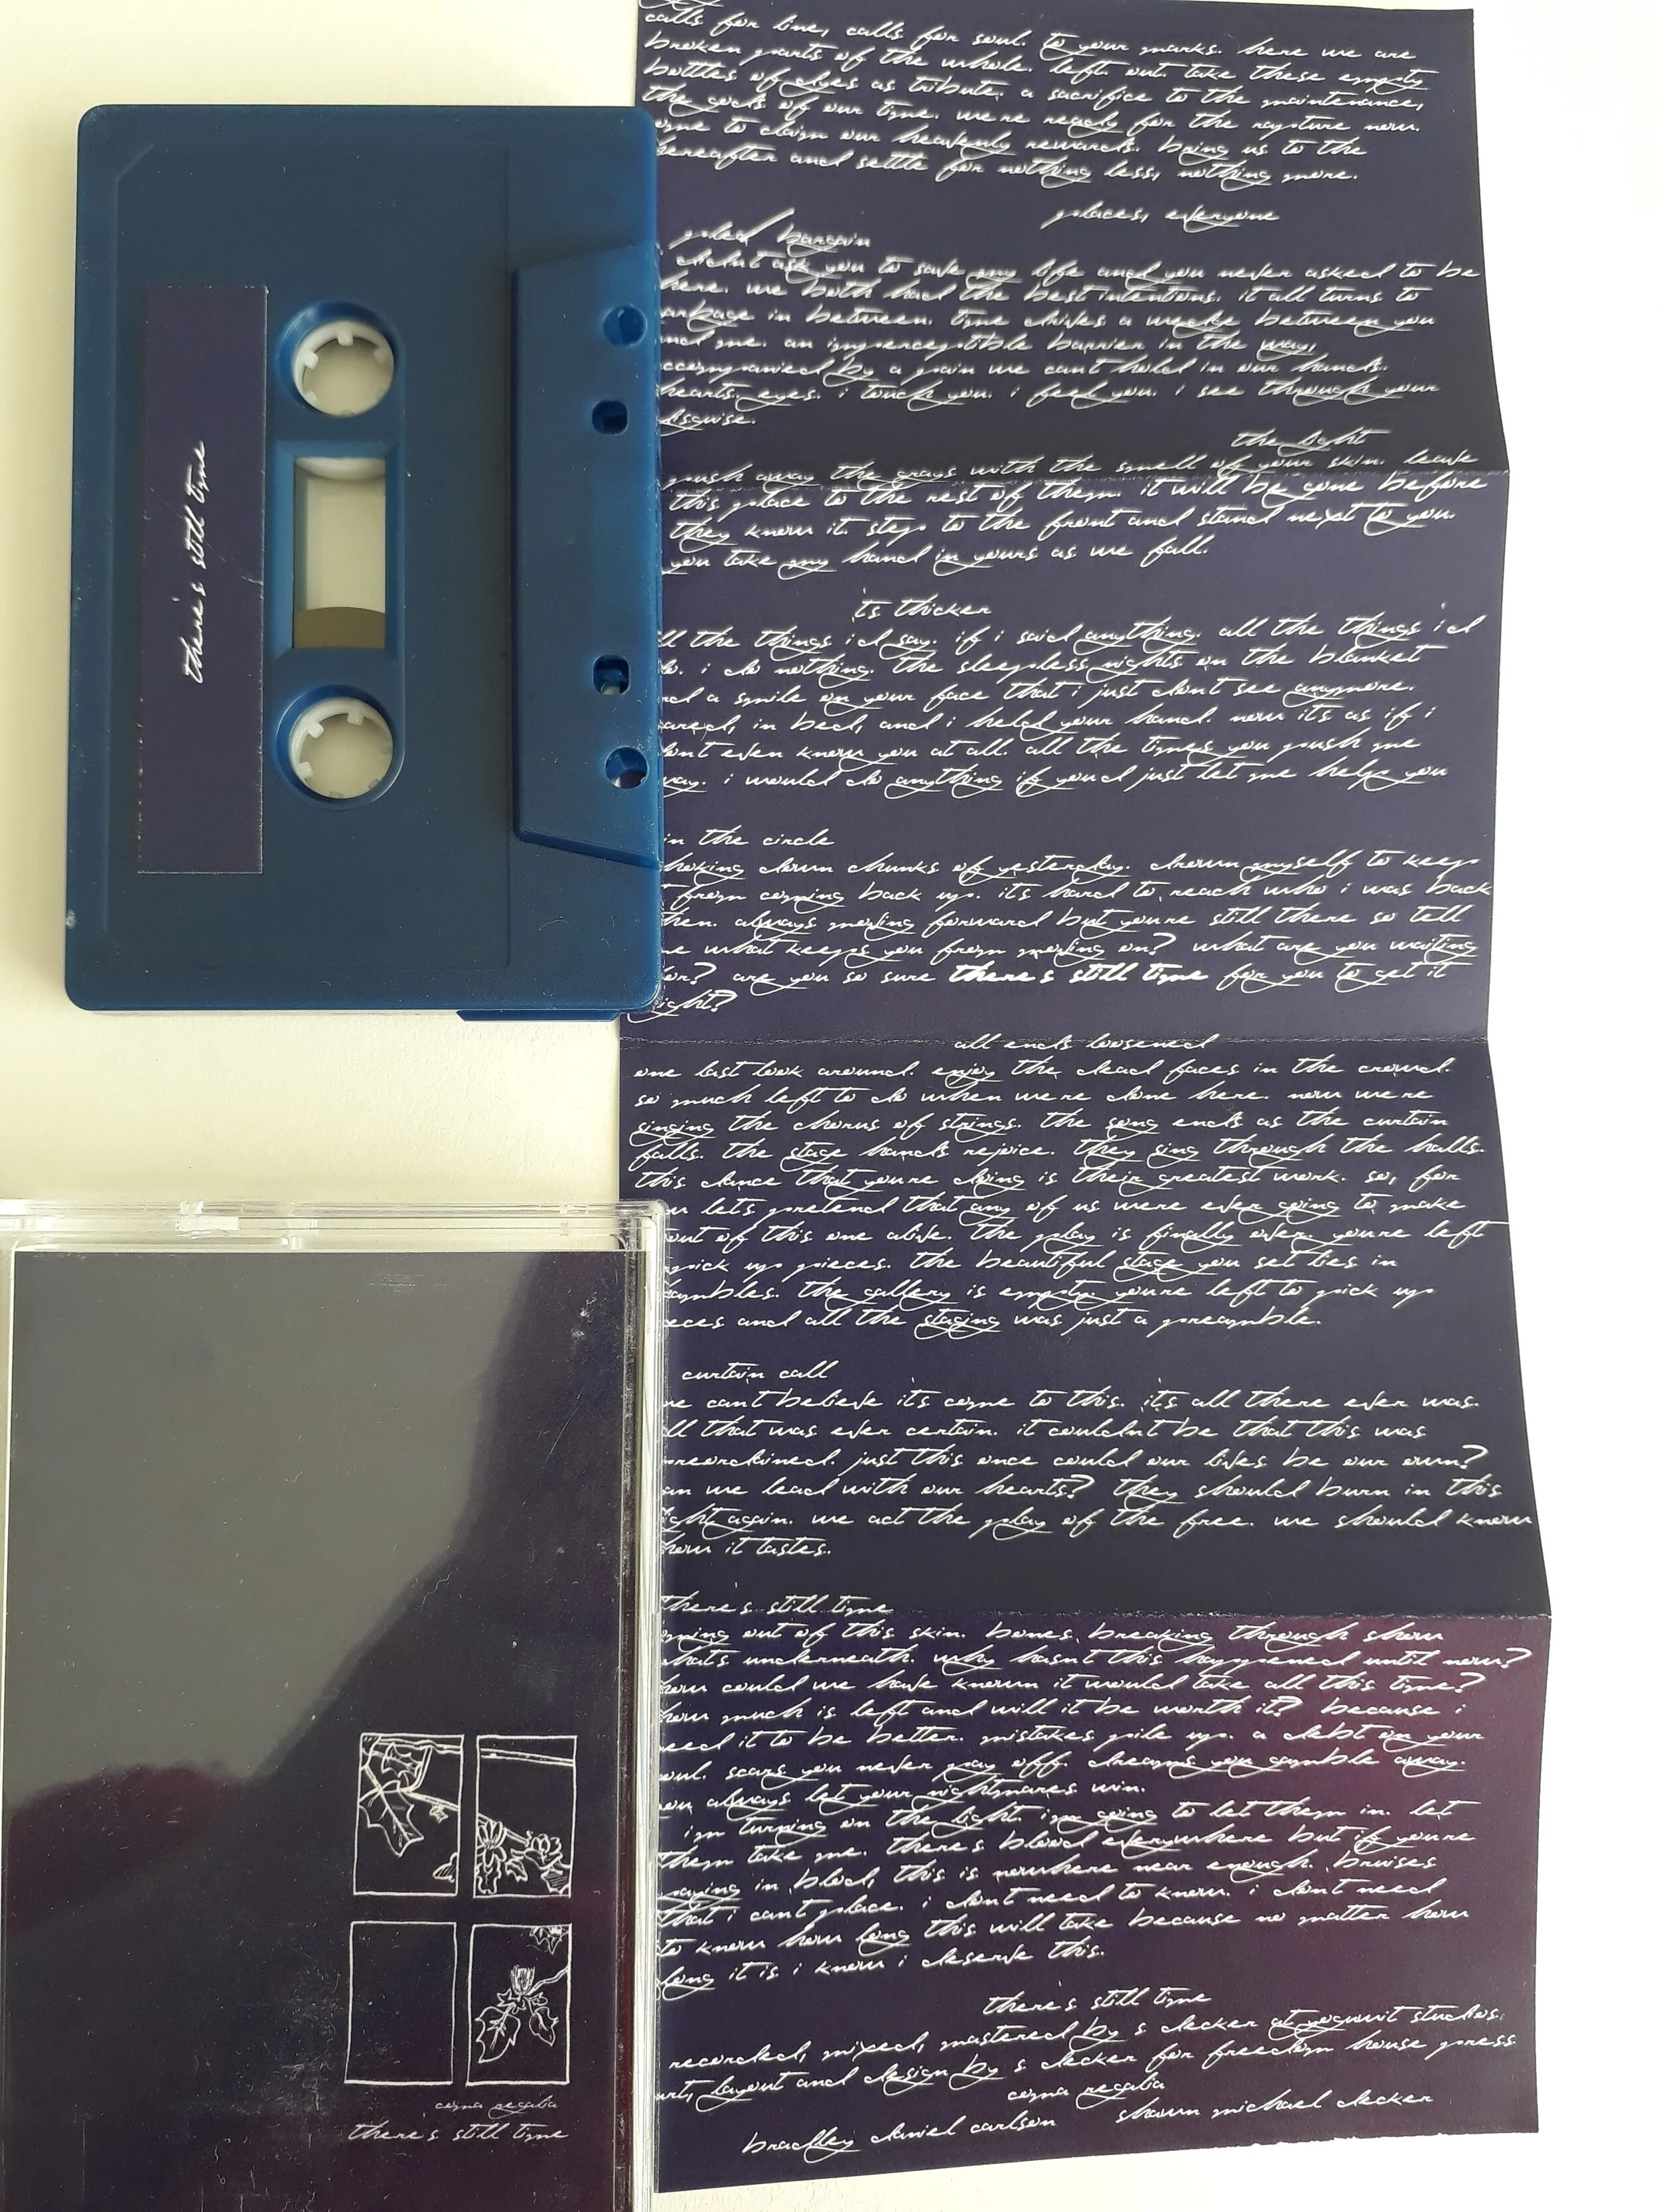 there's still time
calls for line, calls for soul. to your marks. here we are
broken parts of the whole. left out. take these empty
bottles of dyes as tribute. a sacrifice to the maintenance,
the gods of our time. we're ready for the rapture now.
ome to claim our heavenly rewards. bring us to the
hereafter and settle for nothing less, nothing more.
places, everyone
pled bargain
didnt ask you to save my life and you never asked to be
here. we both had the best intentions. it all turns to
arbage in between. time drives a wedge between you
nd me. an imperceptible barrier in the way,
ccompanied by a pain we cant hold in our hands.
hearts. eyes. i touch you. i feel you. i see through your
disguise.
the light
push away the grays with the smell of your skin. leave
this place to the rest of them. it will be gone before
they know it. step to the front and stand next to you.
you take my hand in yours as we fall.
it's thicker
ll the things i'd say. if i said anything. all the things i'd
do. i do nothing. the sleepless nights on the blanket
nd a smile on your face that i just dont see anymore.
ared, in bed, and i held your hand. now its as if i
ont even know you at all. all the times you push me
way. i would do anything if you'd just let me help you
in the circle
hoking down chunks of yesterday. drown myself to keep
t from coming back up. its hard to reach who i was back
then. always moving forward but youre still there so tell
me what keeps you from moving on? what are you waiting
for? are you so sure there's still time for you to get it
ight?
all ends loosened
one last look around. enjoy the dead faces in the crowd.
so much left to do when we're done here. now we're
singing the chorus of strings. the song ends as the curtain
falls. the stage hands rejoice. they sing through the halls.
this dance that youre doing is their greatest work. so, for
let's pretend that any of us were ever going to make
out of this one alive. the play is finally over. youre left
pick up pieces. the beautiful stage you set lies in
ambles. the gallery is empty. youre left to pick up
eces and all the staging was just a preamble.
curtain call
we cant believe its come to this. it's all there ever was.
ll that was ever certain. it couldnt be that this was
preordained. just this once could our lives be our own?
an we lead with our hearts? they should burn in this
ight again. we act the play of the free. we should know
how it tastes.
there's still time
oming out of this skin. bones breaking through show
whats underneath. why hasnt this happened until now?
how could we have known it would take all this time?
how much is left and will it be worth it? because i
need it to be better. mistakes pile up. a debt on your
oul. scars you never pay off. dreams you gamble away.
you always let your nightmares win.
im turning on the light. im going to let them in. let
them take me. there's blood everywhere but if youre
paying in blood, this is nowhere near enough. bruises
that i cant place. i dont need to know. i dont need
to know how long this will take because no matter how
long it is i know i deserve this.
there's still time
recorded, mixed, mastered by s decker at studios.
art, layout and design by s decker for freedom house press
coma regalia
bradley daniel carlson shawn michael decker
coma regalia
there's still time